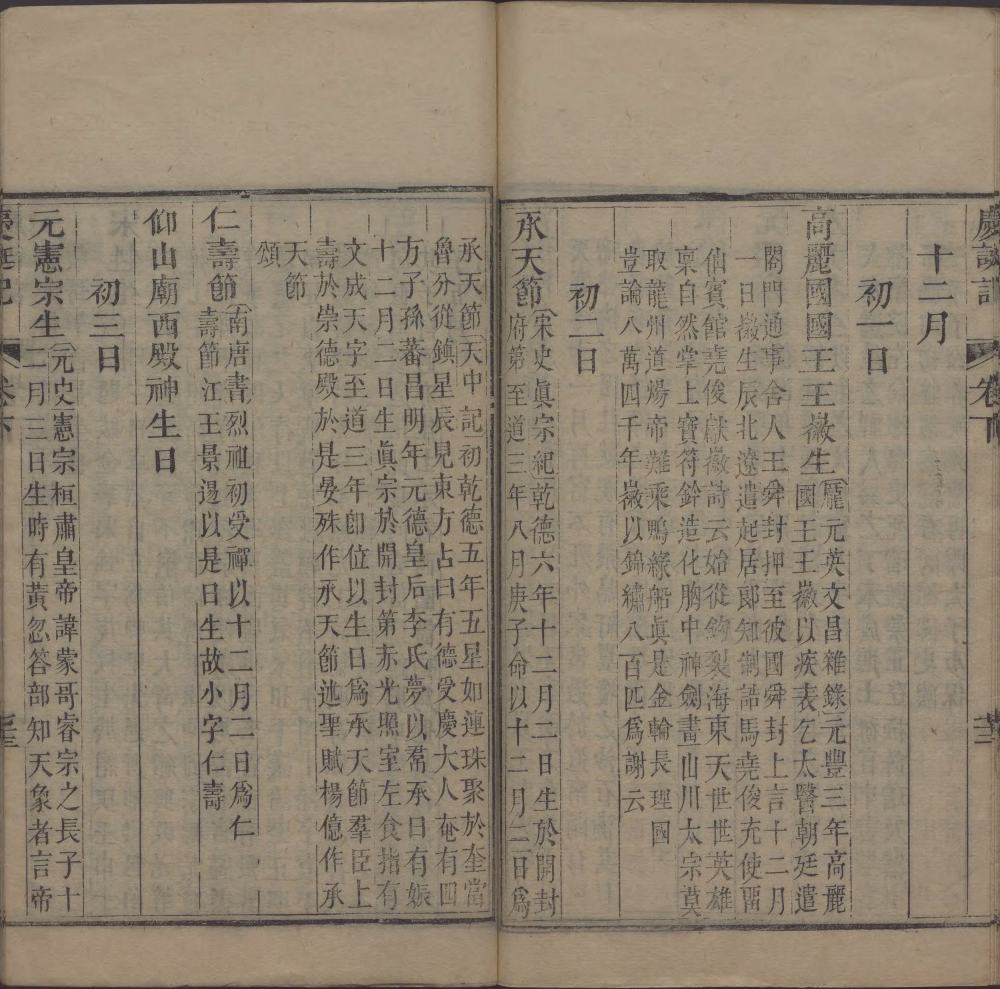 十二月
初一日
高麗國國王王徽生龐元英文昌雜錄元豐三年高麗
國王王徽以疾表乞太醫朝廷遣
閤門通事舍人王舜封押至彼國舜封上言十二月
一日徽生辰北遼遣起居郎知制誥馬堯俊充使畱
仙賓館堯俊獻徽詩云始從鉤裂海東天世世英雄
稟自然掌上寶符鈐造化胸中神劒畫山川太宗莫
取龍州道煬帝難乘鴨綠船眞是金輪長理國
豈論八萬四千年徽以錦繡八百匹爲謝云
初二日
承天節宋史眞宗紀乾德六年十二月二日生於開封
府第至道三年八月庚子命以十二月二日爲
承天節天中記初乾德五年五星如連珠聚於奎當
魯分從鎮星辰見東方占曰有德受慶大人奄有四
方子孫蕃昌明年元德皇后李氏夢以帬承日有娠
十二月二日生眞宗於開封第赤光照室左食指有
文成天字至道三年卽位以生日爲承天節羣臣上
壽於崇德殿於是晏殊作承天節逃聖賦楊億作承
天節
頌
仁壽節南唐書烈祖初受禪以十二月二日爲仁
壽節江王景逷以是日生故小字仁壽
仰山廟西殿神生日
初三日
元憲宗生元史憲宗桓肅皇帝諱蒙哥睿宗之長子十
二月三日生時有黃忽答部知天象者言帝